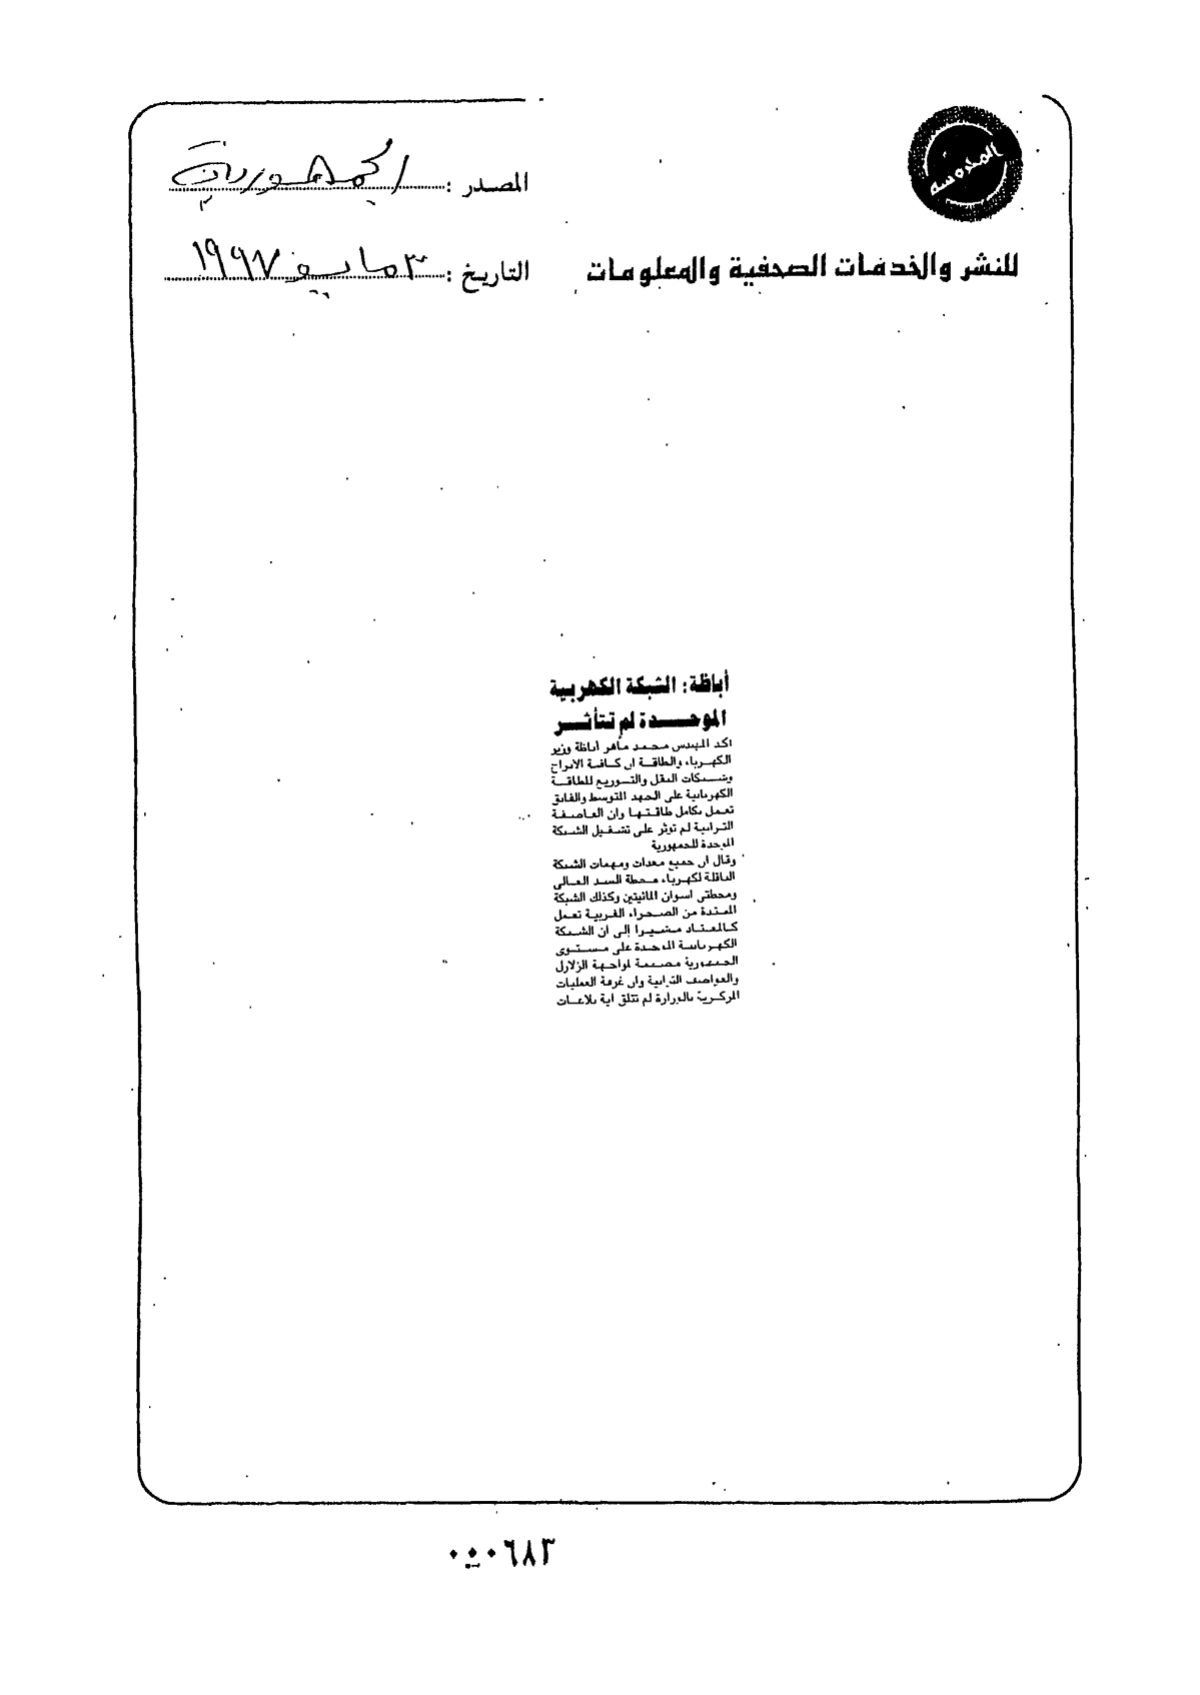 المحروسة
المصدر : الجمهورية
للنشر والخدمات الصحفية والمعلومات
التاريخ : ٣ مايو ١٩٩٧
أباظة: الشبكة الكهربية
الموحدة لم تتأثر
اكد المهندس محمد ماهر اباظة وزير
الكهرباء والطاقة ان كافة الابراج
وشبكات النقل والتوزيع للطاقة
الكهربائية على الجهد المتوسط والفائق
تعمل بكامل طاقتها وان العاصفة
الترابية لم توثر على تشغيل الشبكة
الموحدة للجمهورية
وقال ان جميع معدات ومهمات الشبكة
الناقلة لكهرباء محطة السد العالى
ومحطتى اسوان المائيتين وكذلك الشبكة
الممتدة من الصحراء الغربية تعمل
كالمعتاد مشيرا إلى ان الشبكة
الكهربائية الموحدة على مستوى
الجمهورية مصممة لمواجهة الزلازل
والعواصف الترابية وان غرفة العمليات
المركزية بالوزارة لم تتلق اية بلاغات
٠٠٠٦٨٣